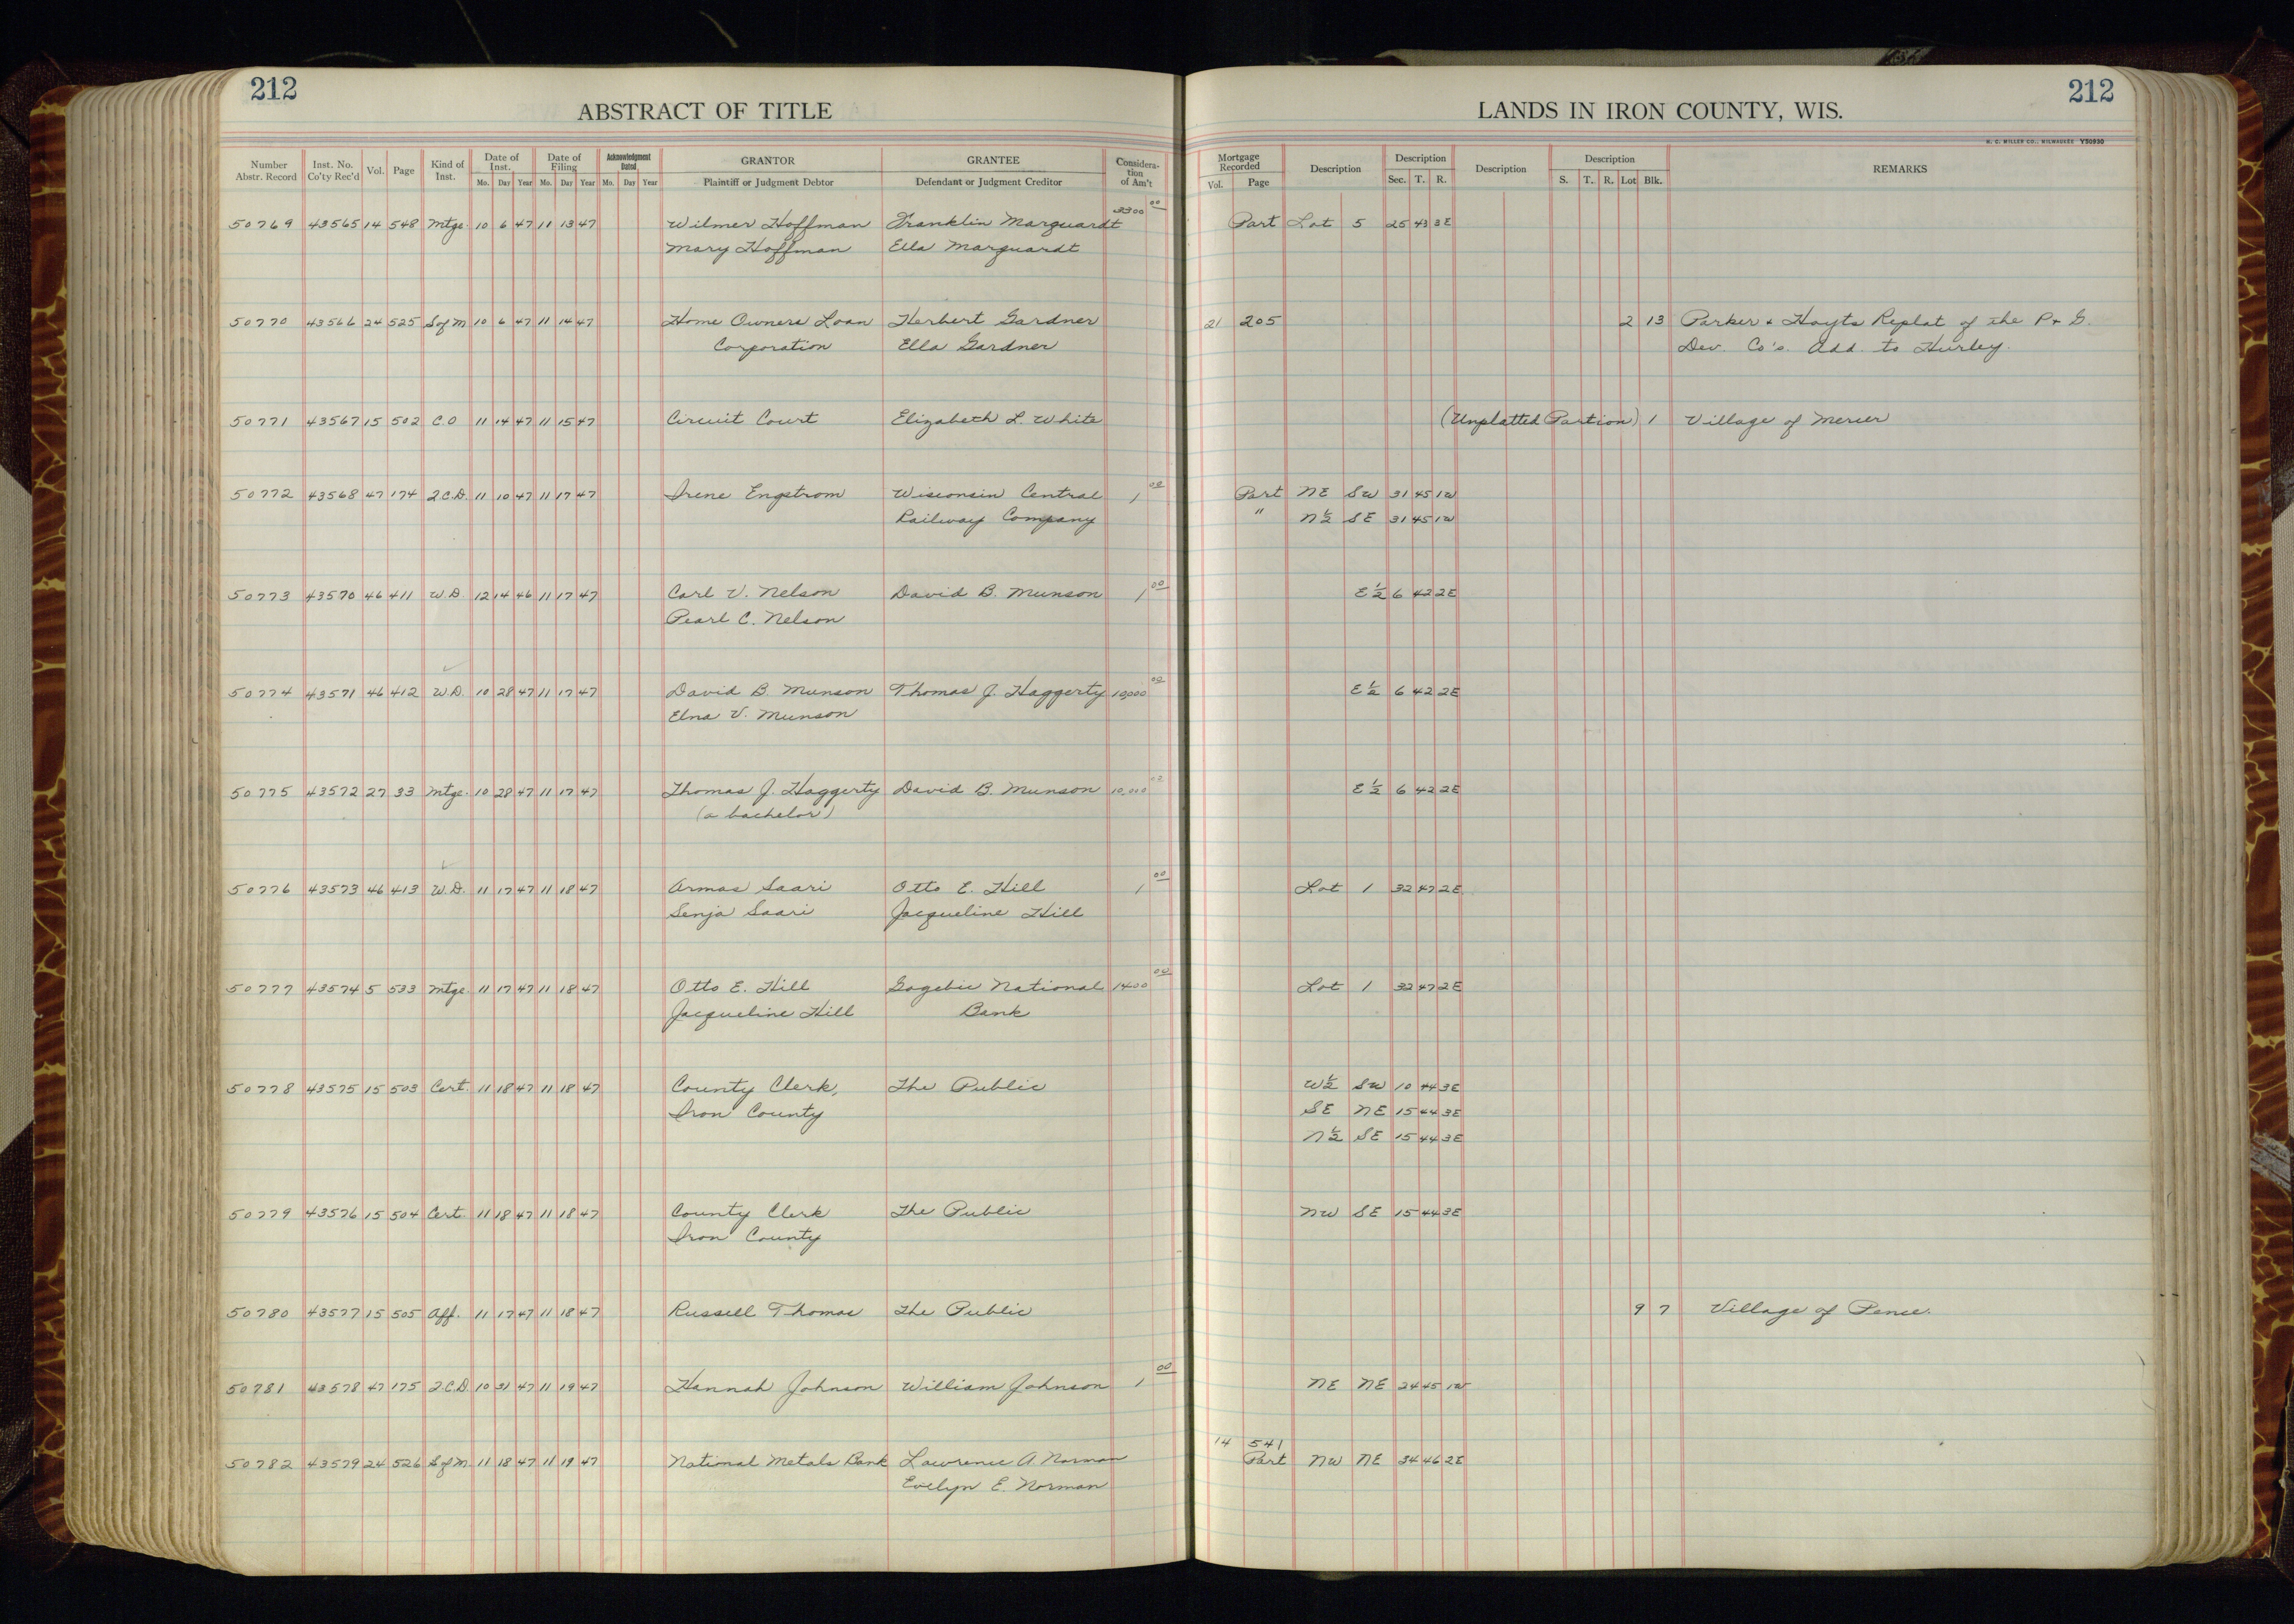 212
ABSTRACT OF TITLE
LANDS IN IRON COUNTY, WIS.
212
H. C. MILLER CO., MILWAUKEE Y50930
Number Abstr. Record | Inst. No. Co'ty Rec'd | Vol. | Page | Kind of Inst. | Date of Inst. Mo. Day Year | Date of Filing Mo. Day Year | Acknowledgment Dated Mo. Day Year | GRANTOR Plaintiff or Judgment Debtor | GRANTEE Defendant or Judgment Creditor | Considera-tion of Am't | Mortgage Recorded Vol. Page | Description | Description Sec. T. R. | Description | Description S. T. R. Lot Blk. | REMARKS
50769 43565 14 548 Mtge. 10 6 47 11 13 47 Wilmer Hoffman Franklin Marquardt 3300 00 Part Lot 5 25 43 3E
Mary Hoffman Ella Marquardt
50770 43566 24 525 S of M 10 6 47 11 14 47 Home Owners Loan Herbert Gardner 21 205 2 13 Parker & Hoyts Replat of the P & G.
Corporation Ella Gardner Dev. Co's. Add. to Hurley.
50771 43567 15 502 C.O 11 14 47 11 15 47 Circuit Court Elizabeth L. White (Unplatted Portion) 1 Village of Mercer
50772 43568 47 174 Q.C.D. 11 10 47 11 17 47 Irene Engstrom Wisconsin Central 1 00 Part NE SW 31 45 1W
Railway Company " N½ SE 31 45 1W
50773 43570 46 411 W.D. 12 14 46 11 17 47 Carl V. Nelson David B. Munson 1 00 E½ 6 42 2E
Pearl C. Nelson
50774 43571 46 412 W.D. 10 28 47 11 17 47 David B. Munson Thomas J. Haggerty 10,000 00 E½ 6 42 2E
Elna V. Munson
50775 43572 27 33 Mtge. 10 28 47 11 17 47 Thomas J. Haggerty David B. Munson 10,000 00 E½ 6 42 2E
(a bachelor)
50776 43573 46 413 W.D. 11 17 47 11 18 47 Armas Saari Otto E. Hill 1 00 Lot 1 32 47 2E
Senja Saari Jacqueline Hill
50777 43574 5 533 Mtge. 11 17 47 11 18 47 Otto E. Hill Gogebic National 1400 00 Lot 1 32 47 2E
Jacqueline Hill Bank
50778 43575 15 503 Cert. 11 18 47 11 18 47 County Clerk, The Public W½ SW 10 44 3E
Iron County SE NE 15 44 3E
N½ SE 15 44 3E
50779 43576 15 504 Cert. 11 18 47 11 18 47 County Clerk The Public NW SE 15 44 3E
Iron County
50780 43577 15 505 Aff. 11 17 47 11 18 47 Russell Thomas The Public 9 7 Village of Pence.
50781 43578 47 175 Q.C.D 10 31 47 11 19 47 Hannah Johnson William Johnson 1 00 NE NE 24 45 1W
14 541
50782 43579 24 526 S of M 11 18 47 11 19 47 National Metals Bank Lawrence A. Norman Part NW NE 34 46 2E
Evelyn E. Norman